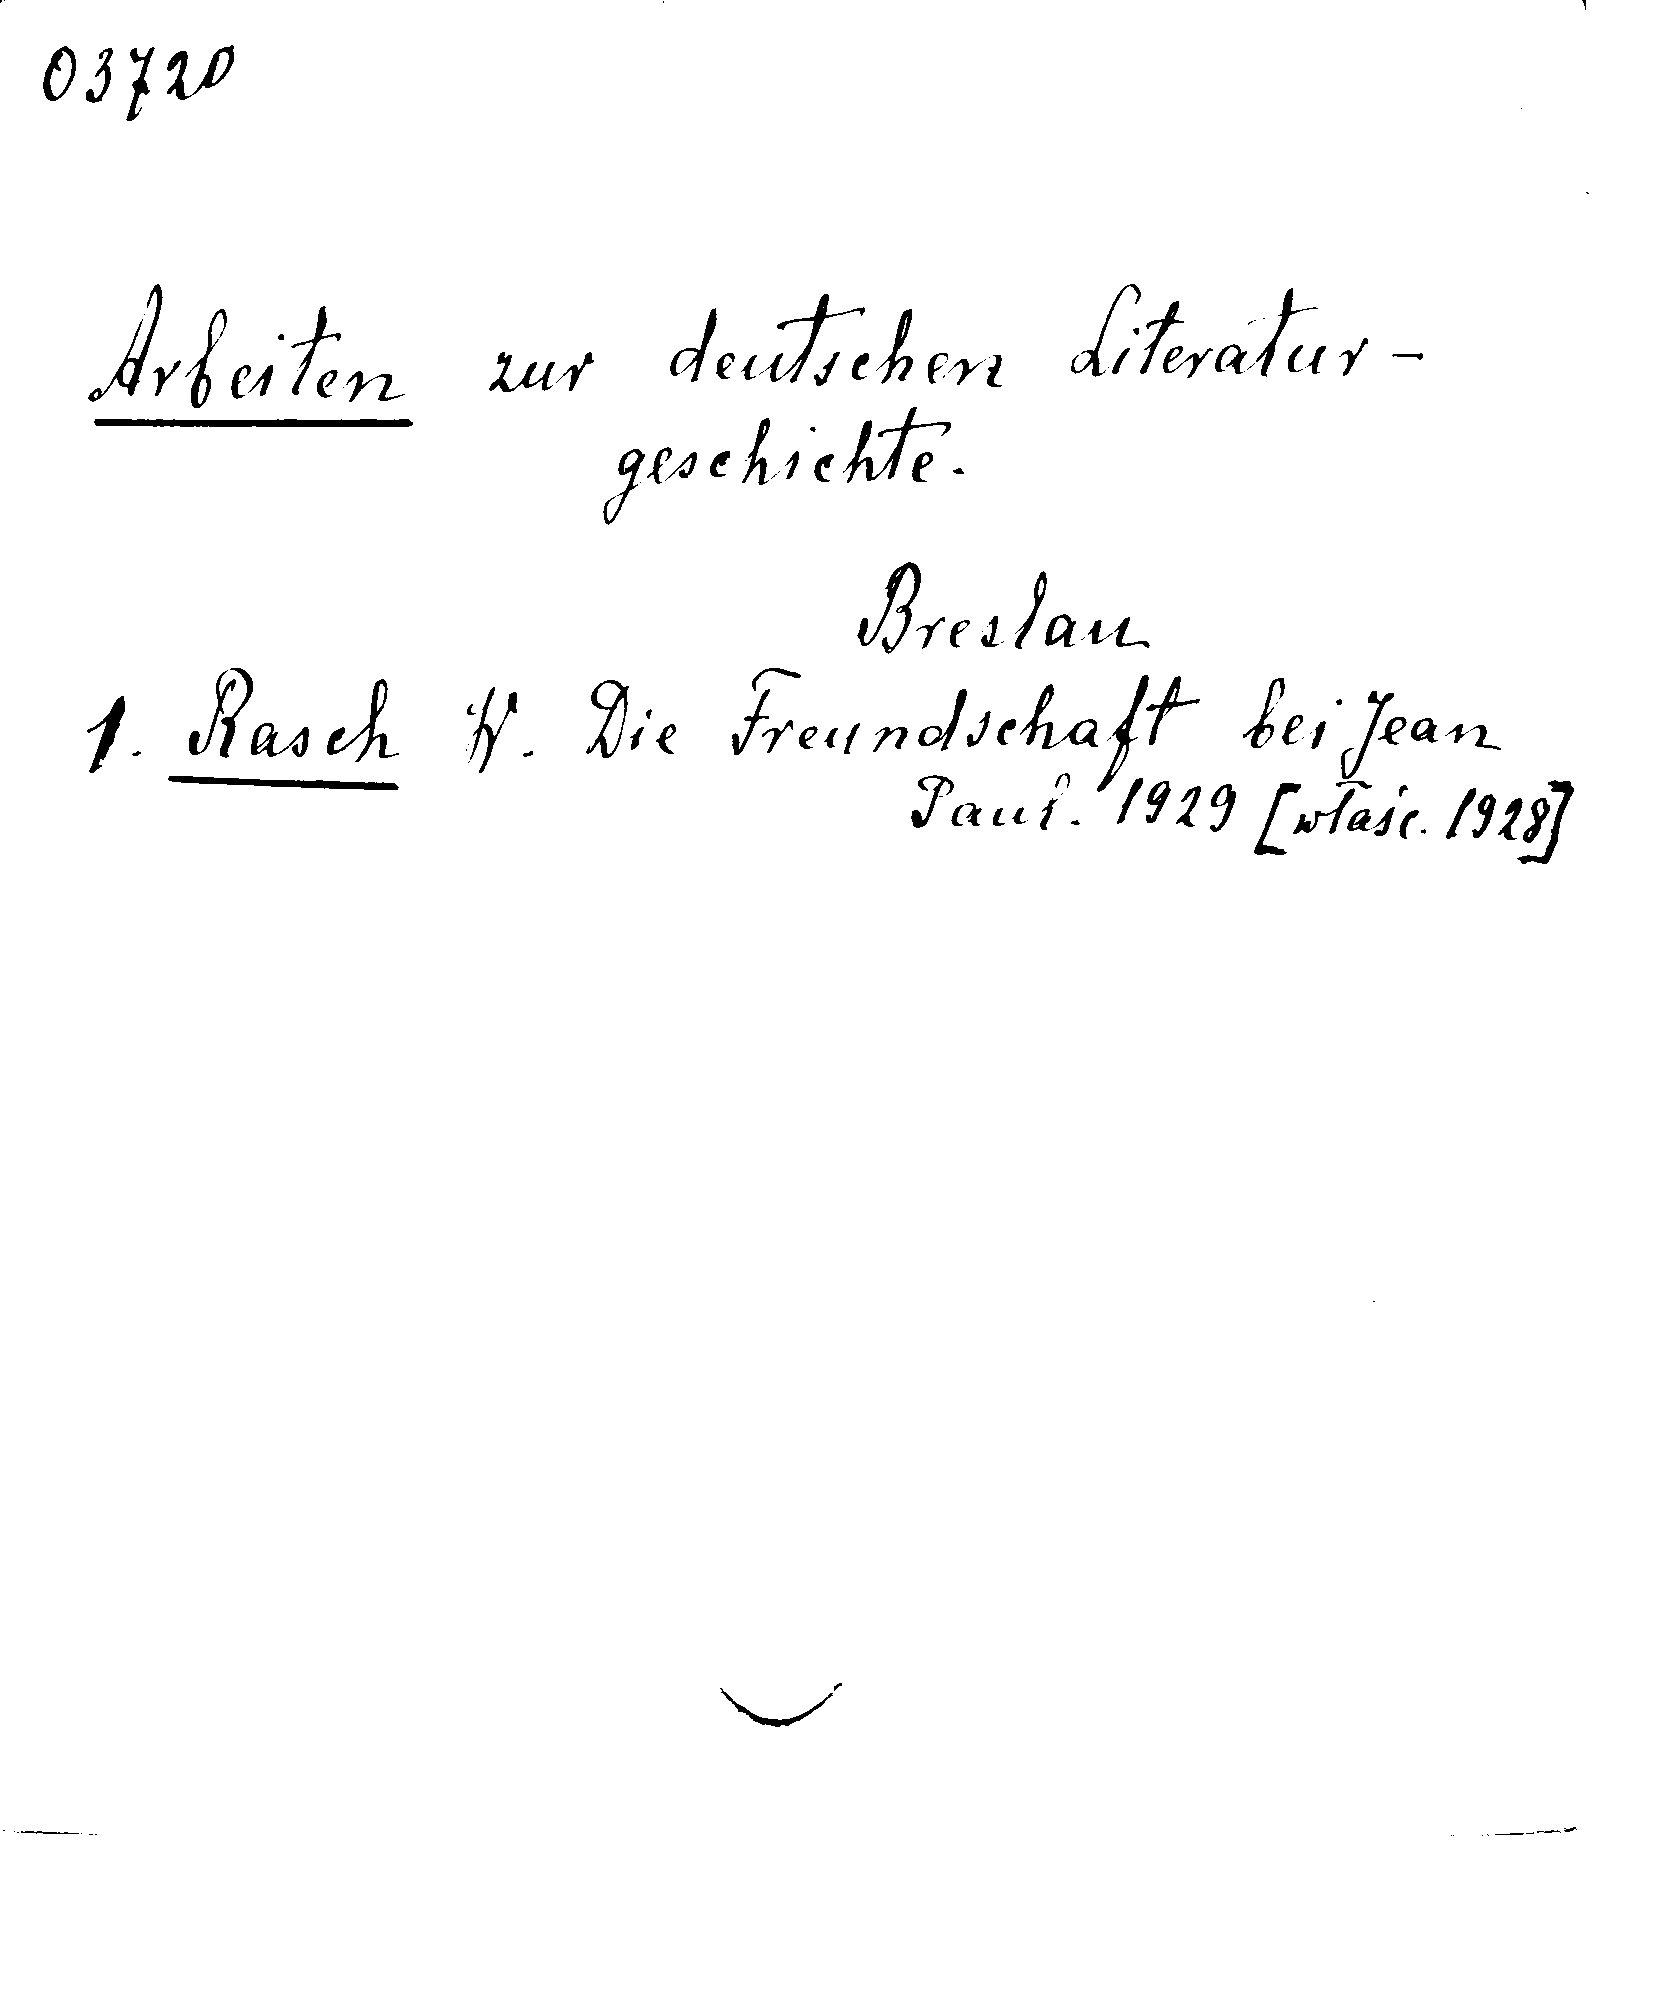 03720
Arbeiten zur deutschen Literatur-
geschichte.
Breslau
1. Rasch W. Die Freundschaft bei Jean
Paul. 1929 [właśc. 1928]